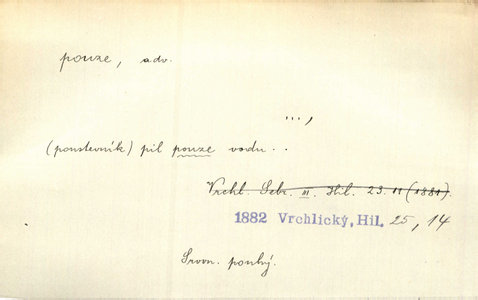 pouze, adv.
...,
(poustevník) pil pouze vodu..
Vrchl. Sebr. III. Hil. 23. II (1881).
1882 Vrchlický, Hil. 25, 14
Srovn. pouhý.